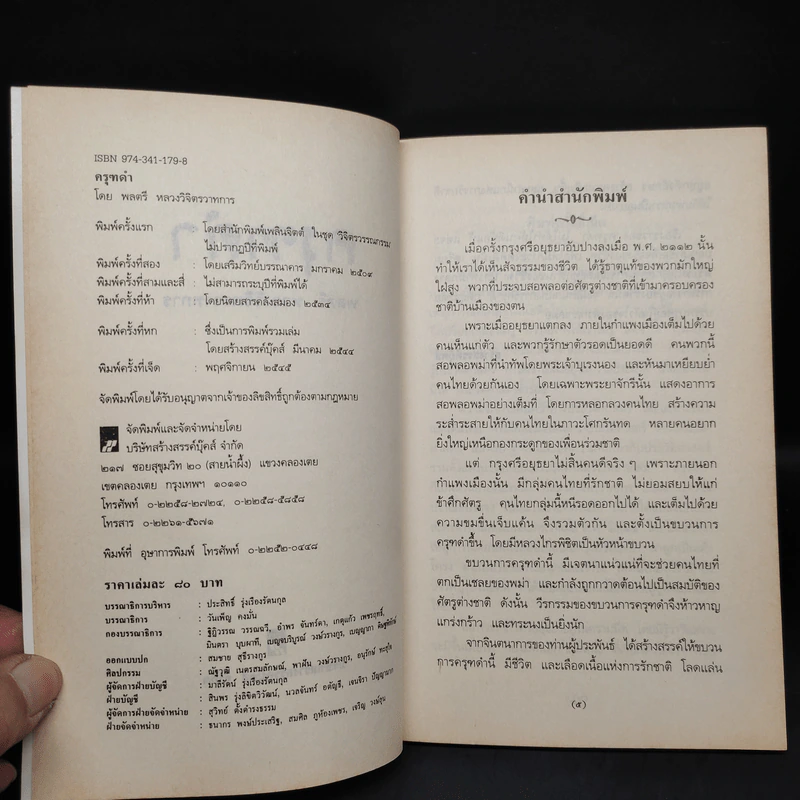 ISBN 974-341-179-8
ครุฑดำ
โดย พลตรี หลวงวิจิตรวาทการ
พิมพ์ครั้งแรก : โดยสำนักพิมพ์เพลินจิตต์ ในชุด วิจิตรวรรณกรรม
ไม่ปรากฏปีที่พิมพ์
พิมพ์ครั้งที่สอง : โดยเสริมวิทย์บรรณาคาร มกราคม ๒๕๐๑
พิมพ์ครั้งที่สามและสี่ : ไม่สามารถระบุปีที่พิมพ์ได้
พิมพ์ครั้งที่ห้า : โดยนิตยสารคลังสมอง ๒๕๓๔
พิมพ์ครั้งที่หก : ซึ่งเป็นการพิมพ์รวมเล่ม
โดยสร้างสรรค์บุ๊คส์ มีนาคม ๒๕๔๔
พิมพ์ครั้งที่เจ็ด : พฤศจิกายน ๒๕๔๕
จัดพิมพ์โดยได้รับอนุญาตจากเจ้าของลิขสิทธิ์ถูกต้องตามกฎหมาย
จัดพิมพ์และจัดจำหน่ายโดย
บริษัทสร้างสรรค์บุ๊คส์ จำกัด
๒๑๗ ซอยสุขุมวิท ๒๐ (สายน้ำผึ้ง) แขวงคลองเตย
เขตคลองเตย กรุงเทพฯ ๑๐๑๑๐
โทรศัพท์ ๐-๒๒๕๘-๒๗๒๔, ๐-๒๒๕๘-๕๘๕๘
โทรสาร ๐-๒๒๖๑-๕๖๗๑
พิมพ์ที่ อุษาการพิมพ์ โทรศัพท์ ๐-๒๒๕๒-๐๔๔๘
ราคาเล่มละ ๘๐ บาท
บรรณาธิการบริหาร : ประสิทธิ์ รุ่งเรืองรัตนกุล
บรรณาธิการ : วันเพ็ญ คงมั่น
กองบรรณาธิการ : ฐิฎิวรรณ วรรณฉวี, อำพร จันทร์ดา, เกตุแก้ว เพชรฤทธิ์,
มินตรา บุบผาที, เบญจบริบูรณ์ วงษ์วรางกูร, เบญญาภา
ออกแบบปก : สมชาย สุธีรางกูร
ศิลปกรรม : ณัฐวุฒิ เนตรสมลักษณ์, พาฝัน วงษ์วรางกูร, อนุรักษ์
ผู้จัดการฝ่ายบัญชี : มาลีรัตน์ รุ่งเรืองรัตนกุล
ฝ่ายบัญชี : สินพร รุ่งลิขิตวิวัฒน์, นวลจันทร์ อดัญรี, เจนจิรา
ผู้จัดการฝ่ายจัดจำหน่าย : สุวิทย์ ตั้งดำรงธรรม
ฝ่ายจัดจำหน่าย : ธนากร พงษ์ประเสริฐ, สมศิล ภูท้องเพชร, เจริญ
คำนำสำนักพิมพ์
เมื่อครั้งกรุงศรีอยุธยาอับปางลงเมื่อ พ.ศ. ๒๑๑๒ นั้น
ทำให้เราได้เห็นสัจธรรมของชีวิต ได้รู้ธาตุแท้ของพวกมักใหญ่
ใฝ่สูง พวกที่ประจบสอพลอต่อศัตรูต่างชาติที่เข้ามาครอบครอง
ชาติบ้านเมืองของตน
เพราะเมื่ออยุธยาแตกลง ภายในกำแพงเมืองเต็มไปด้วย
คนเห็นแก่ตัว และพวกรู้รักษาตัวรอดเป็นยอดดี คนพวกนี้
สอพลอพม่าที่นำทัพโดยพระเจ้าบุเรงนอง และหันมาเหยียบย่ำ
คนไทยด้วยกันเอง โดยเฉพาะพระยาจักรีนั้น แสดงอาการ
สอพลอพม่าอย่างเต็มที่ โดยการหลอกลวงคนไทย สร้างความ
ระส่ำระสายให้กับคนไทยในภาวะโศกรันทด หลายคนอยาก
ยิ่งใหญ่เหนือกองกระดูกของเพื่อนร่วมชาติ
แต่ กรุงศรีอยุธยาไม่สิ้นคนดีจริง ๆ เพราะภายนอก
กำแพงเมืองนั้น มีกลุ่มคนไทยที่รักชาติ ไม่ยอมสยบให้แก่
ข้าศึกศัตรู คนไทยกลุ่มนี้หนีรอดออกไปได้ และเต็มไปด้วย
ความขมขื่นเจ็บแค้น จึงรวมตัวกัน และตั้งเป็นขบวนการ
ครุฑดำขึ้น โดยมีหลวงไกรพิชิตเป็นหัวหน้าขบวน
ขบวนการครุฑดำนี้ มีเจตนาแน่วแน่ที่จะช่วยคนไทยที่
ตกเป็นเชลยของพม่า และกำลังถูกกวาดต้อนไปเป็นสมบัติของ
ศัตรูต่างชาติ ดังนั้น วีรกรรมของขบวนการครุฑดำจึงห้าวหาญ
แกร่งกร้าว และทระนงเป็นยิ่งนัก
จากจินตนาการของท่านผู้ประพันธ์ ได้สร้างสรรค์ให้ขบวน
การครุฑดำนี้ มีชีวิต และเลือดเนื้อแห่งการรักชาติ โลดแล่น
(๕)